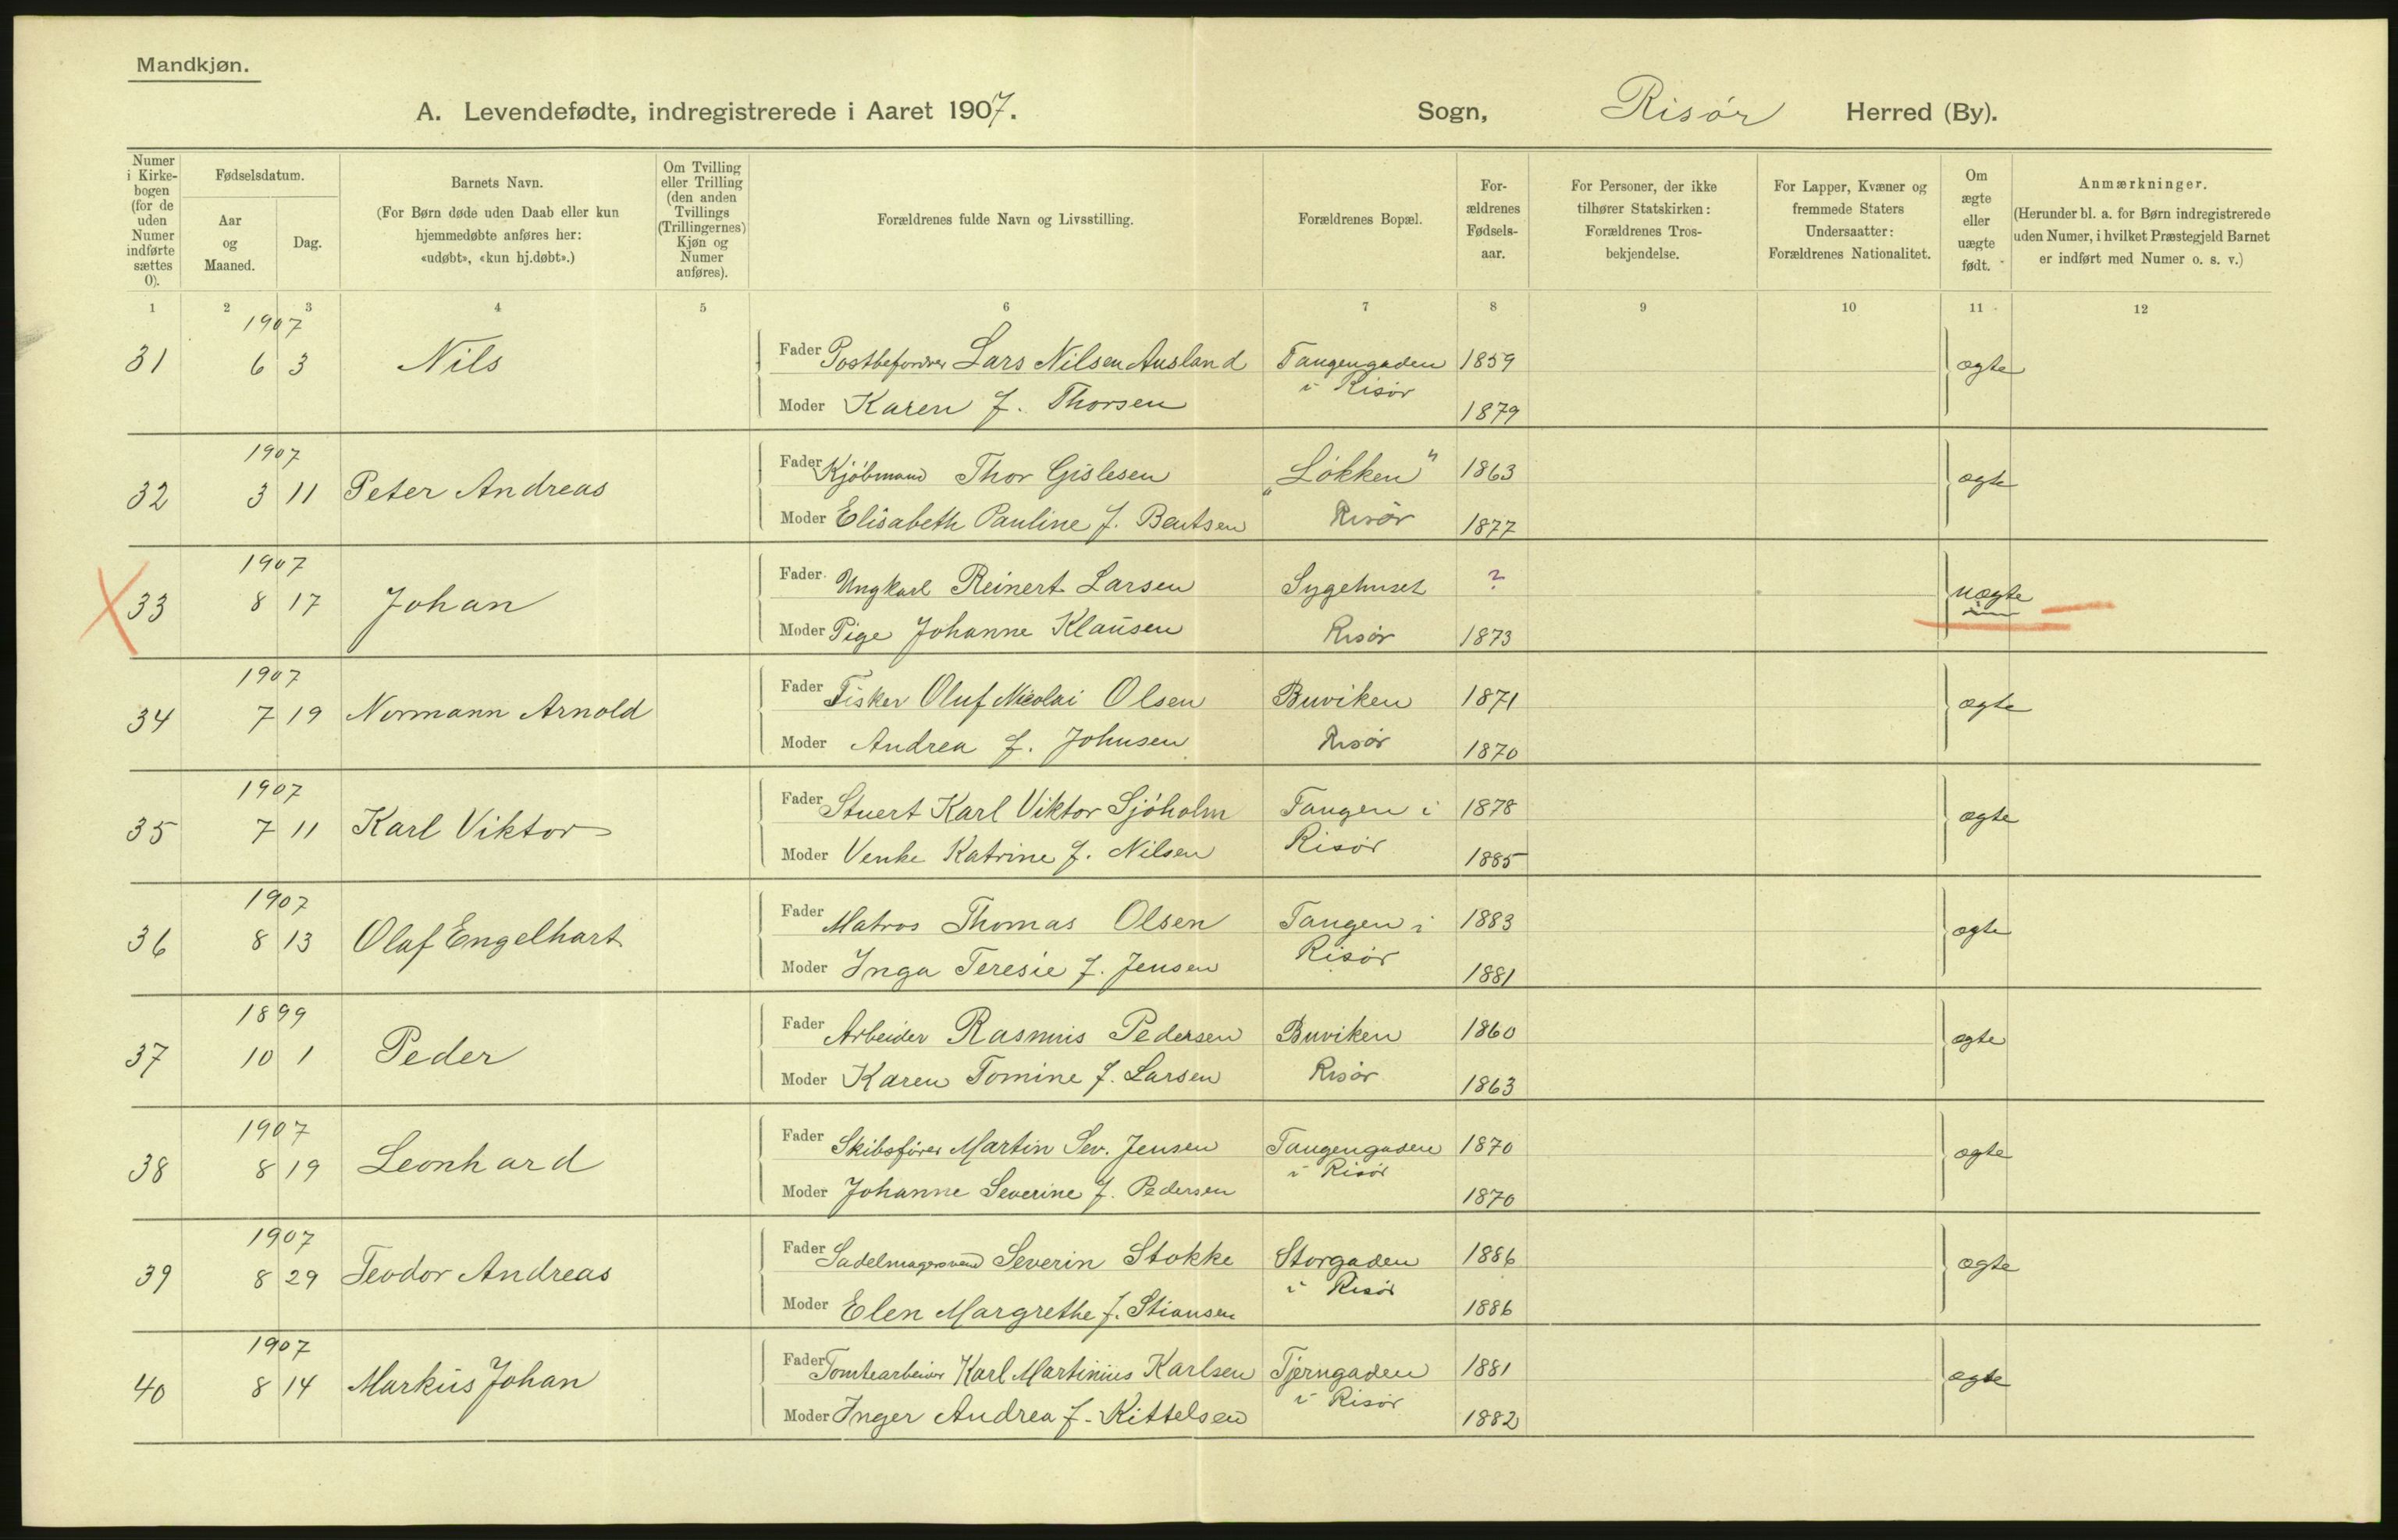 Mandkjøn.
A. Levendefødte, indregistrerede i Aaret 1907. Sogn, Risör Herred (By).
Numer i Kirkebogen (for de uden Numer indførte sættes 0).
Fødselsdatum.
Aar og Maaned.
Dag.
Barnets Navn.
(For Børn døde uden Daab eller kun hjemmedøbte anføres her: «udøbt», «kun hj.døbt».)
Om Tvilling eller Trilling (den anden Tvillings (Trillingernes) Kjøn og Numer anføres).
Forældrenes fulde Navn og Livsstilling.
Forældrenes Bopæl.
Forældrenes Fødselsaar.
For Personer, der ikke tilhører Statskirken: Forældrenes Trosbekjendelse.
For Lapper, Kvæner og fremmede Staters Undersaatter: Forældrenes Nationalitet.
Om ægte eller uægte født.
Anmærkninger.
(Herunder bl. a. for Børn indregistrerede uden Numer, i hvilket Præstegjeld Barnet er indført med Numer o. s. v.)
1 2 3 4 5 6 7 8 9 10 11 12
1907
31 6 3 Nils Fader Postbefordrer Lars Nilsen Ausland Tangengaden 1859 ægte
i Risör
Moder Karen f. Thorsen 1879
1907
32 3 11 Peter Andreas Fader Kjöbmand Thor Gislesen „Lökken" 1863 ægte
Moder Elisabeth Pauline f. Bentsen Risör 1877
1907
33 8 17 Johan Fader Ungkarl Reinert Larsen Sygehuset ? uægte
Moder Pige Johanne Klausen Risör 1873
1907
34 7 19 Normann Arnold Fader Fisker Oluf Nicolai Olsen Buviken 1871 ægte
Moder Andrea f. Johnsen Risör 1870
1907
35 7 11 Karl Viktor Fader Stuert Karl Viktor Sjöholm Tangen i 1878 ægte
Moder Venke Katrine f. Nilsen Risör 1885
1907
36 8 13 Olaf Engelhart Fader Matros Thomas Olsen Tangen i 1883 ægte
Moder Inga Teresie f. Jensen Risör 1881
1899
37 10 1 Peder Fader Arbeider Rasmus Pedersen Buviken 1860 ægte
Moder Karen Tomine f. Larsen Risör 1863
1907
38 8 19 Leonhard Fader Skibsförer Martin Sev. Jensen Tangengaden 1870 ægte
i Risör
Moder Johanne Severine f. Pedersen 1870
1907
39 8 29 Teodor Andreas Fader Sadelmagersvend Severin Stokke Storgaden 1886 ægte
i Risör
Moder Elen Margrethe f. Stiansen 1886
1907
40 8 14 Markus Johan Fader Tomtearbeider Karl Martinius Karlsen Tjerngaden 1881 ægte
i Risör
Moder Inger Andrea f. Kittelsen 1882